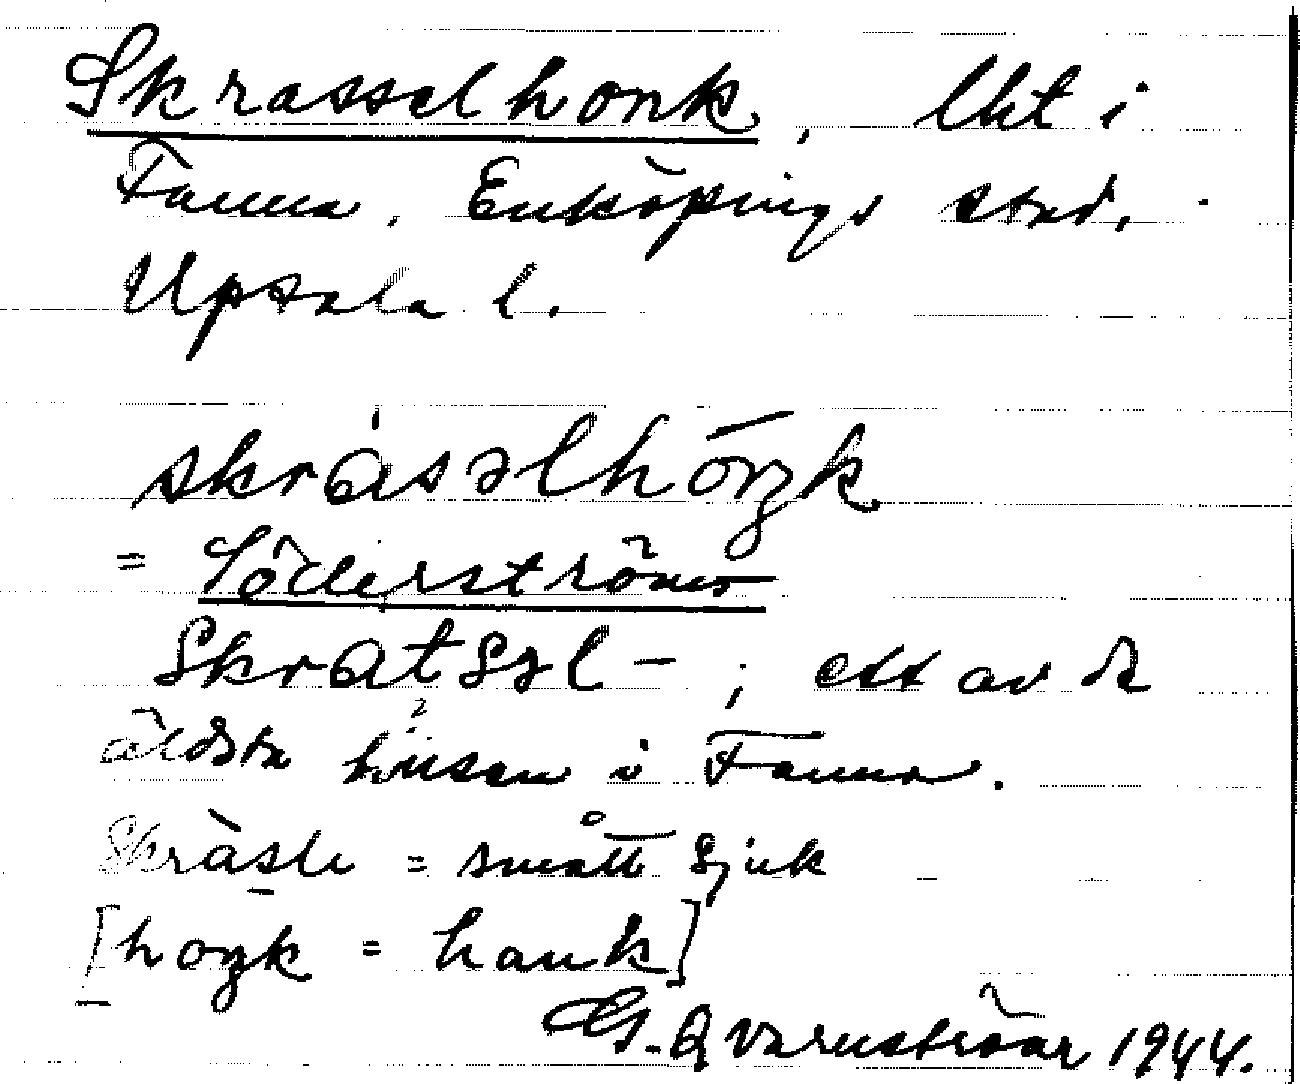 Skrasselhonk, lht i
Fanna, Enköpings stad,
Upsala l.
skràsəlhóŋk
= Söderströms
Skratsəl- ; ett av de
äldsta husen i Fanna.
Skràsli = smått sjuk
[hoŋk = hank]
G. Qvarnström 1944.